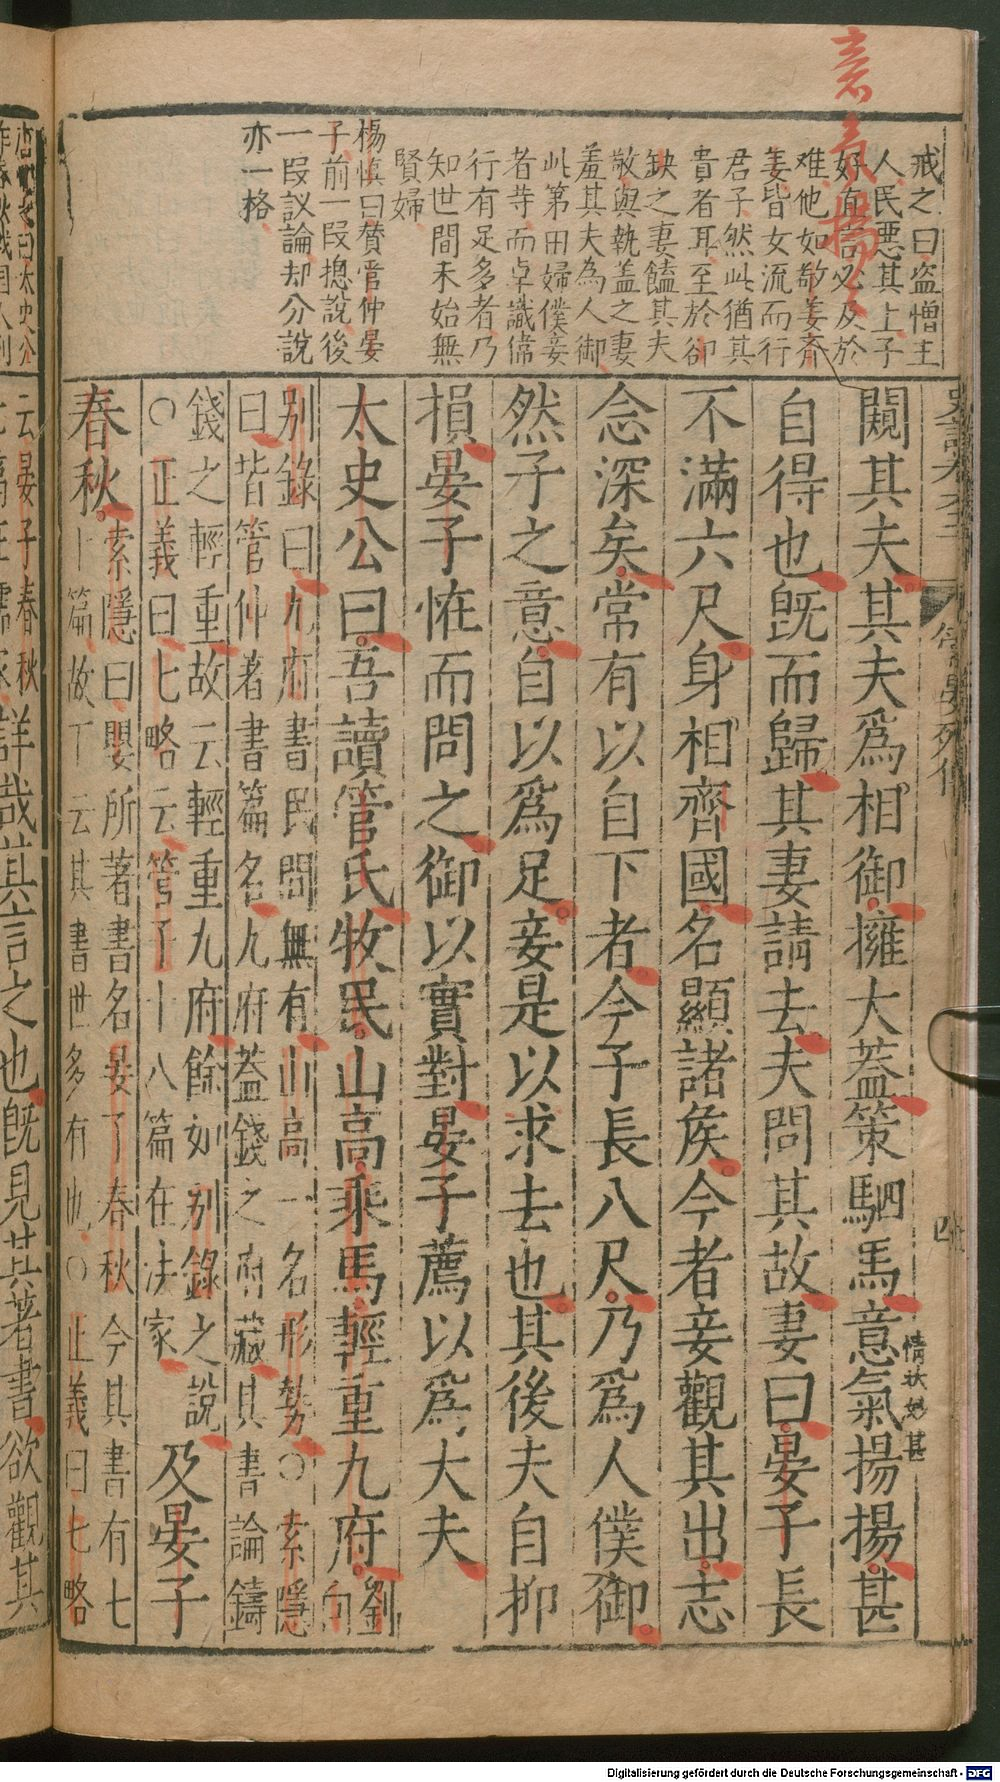 意氣揚々
戒之曰盗憎主
人民惡其上子
好直言必及於
难他如敬姜齊
姜皆女流而行
君子然此猶其
貴者耳至於卻
缺之妻饁其夫
敬與執盖之妻
羞其夫為人御
此第田婦僕妾
者寺而卓識偉
行有足多者乃
知世間未始無
賢婦
楊慎曰贊管仲晏
子前一段摠說後
一段議論却分說
亦一格
史記卷六十二
管晏列傳
四
闚其夫其夫爲相御擁大蓋策駟馬意氣揚揚甚
情狀妙甚
自得也旣而歸其妻請去夫問其故妻曰晏子長
不滿六尺身相齊國名顯諸矦今者妾觀其出志
念深矣常有以自下者今子長八尺乃爲人僕御
然子之意自以爲足妾是以求去也其後夫自抑
損晏子恠而問之御以實對晏子薦以爲大夫
太史公曰吾讀管氏牧民山高乘馬輕重九府劉向
别錄曰九府書民間無有山高一名形勢○索隱
曰皆管仲著書篇名九府蓋錢之府藏其書論鑄
錢之輕重故云輕重九府餘如别錄之說
○正義曰七略云管子十八篇在法家
及晏子
春秋
索隱曰嬰所著書名晏子春秋今其書有七
十篇故下云其書世多有也○正義曰七略
云晏子春秋
詳哉其言之也旣見其著書欲觀其
Digitalisierung gefördert durch die Deutsche Forschungsgemeinschaft - DFG